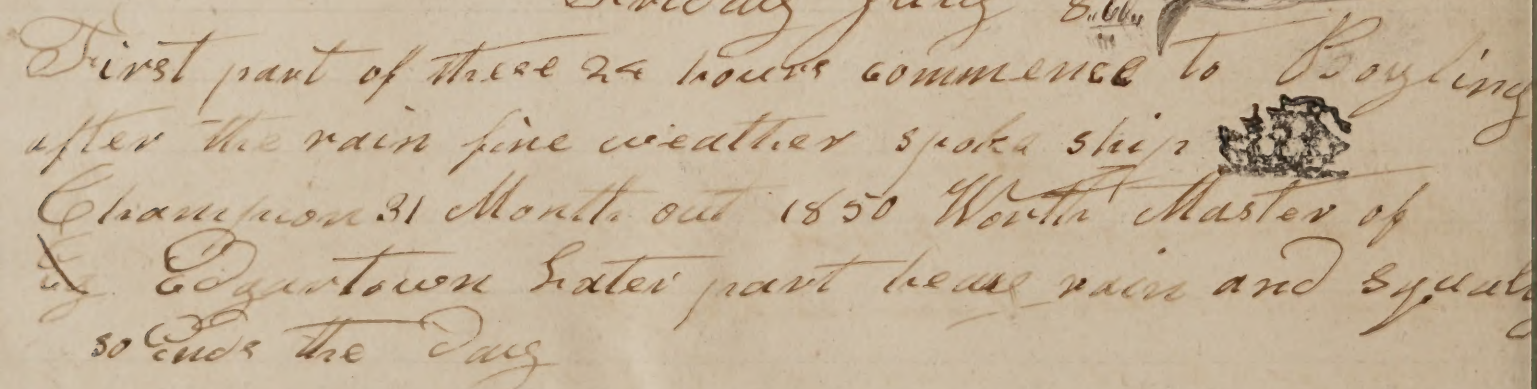 July 8
First part of these 24 hours commence to Boyling
after the rain fine weather spoke ship
Champion 31 Month out 1850 Worth Master of
Eg Edgartown Later part heave rain and squaly
so Ends the Day